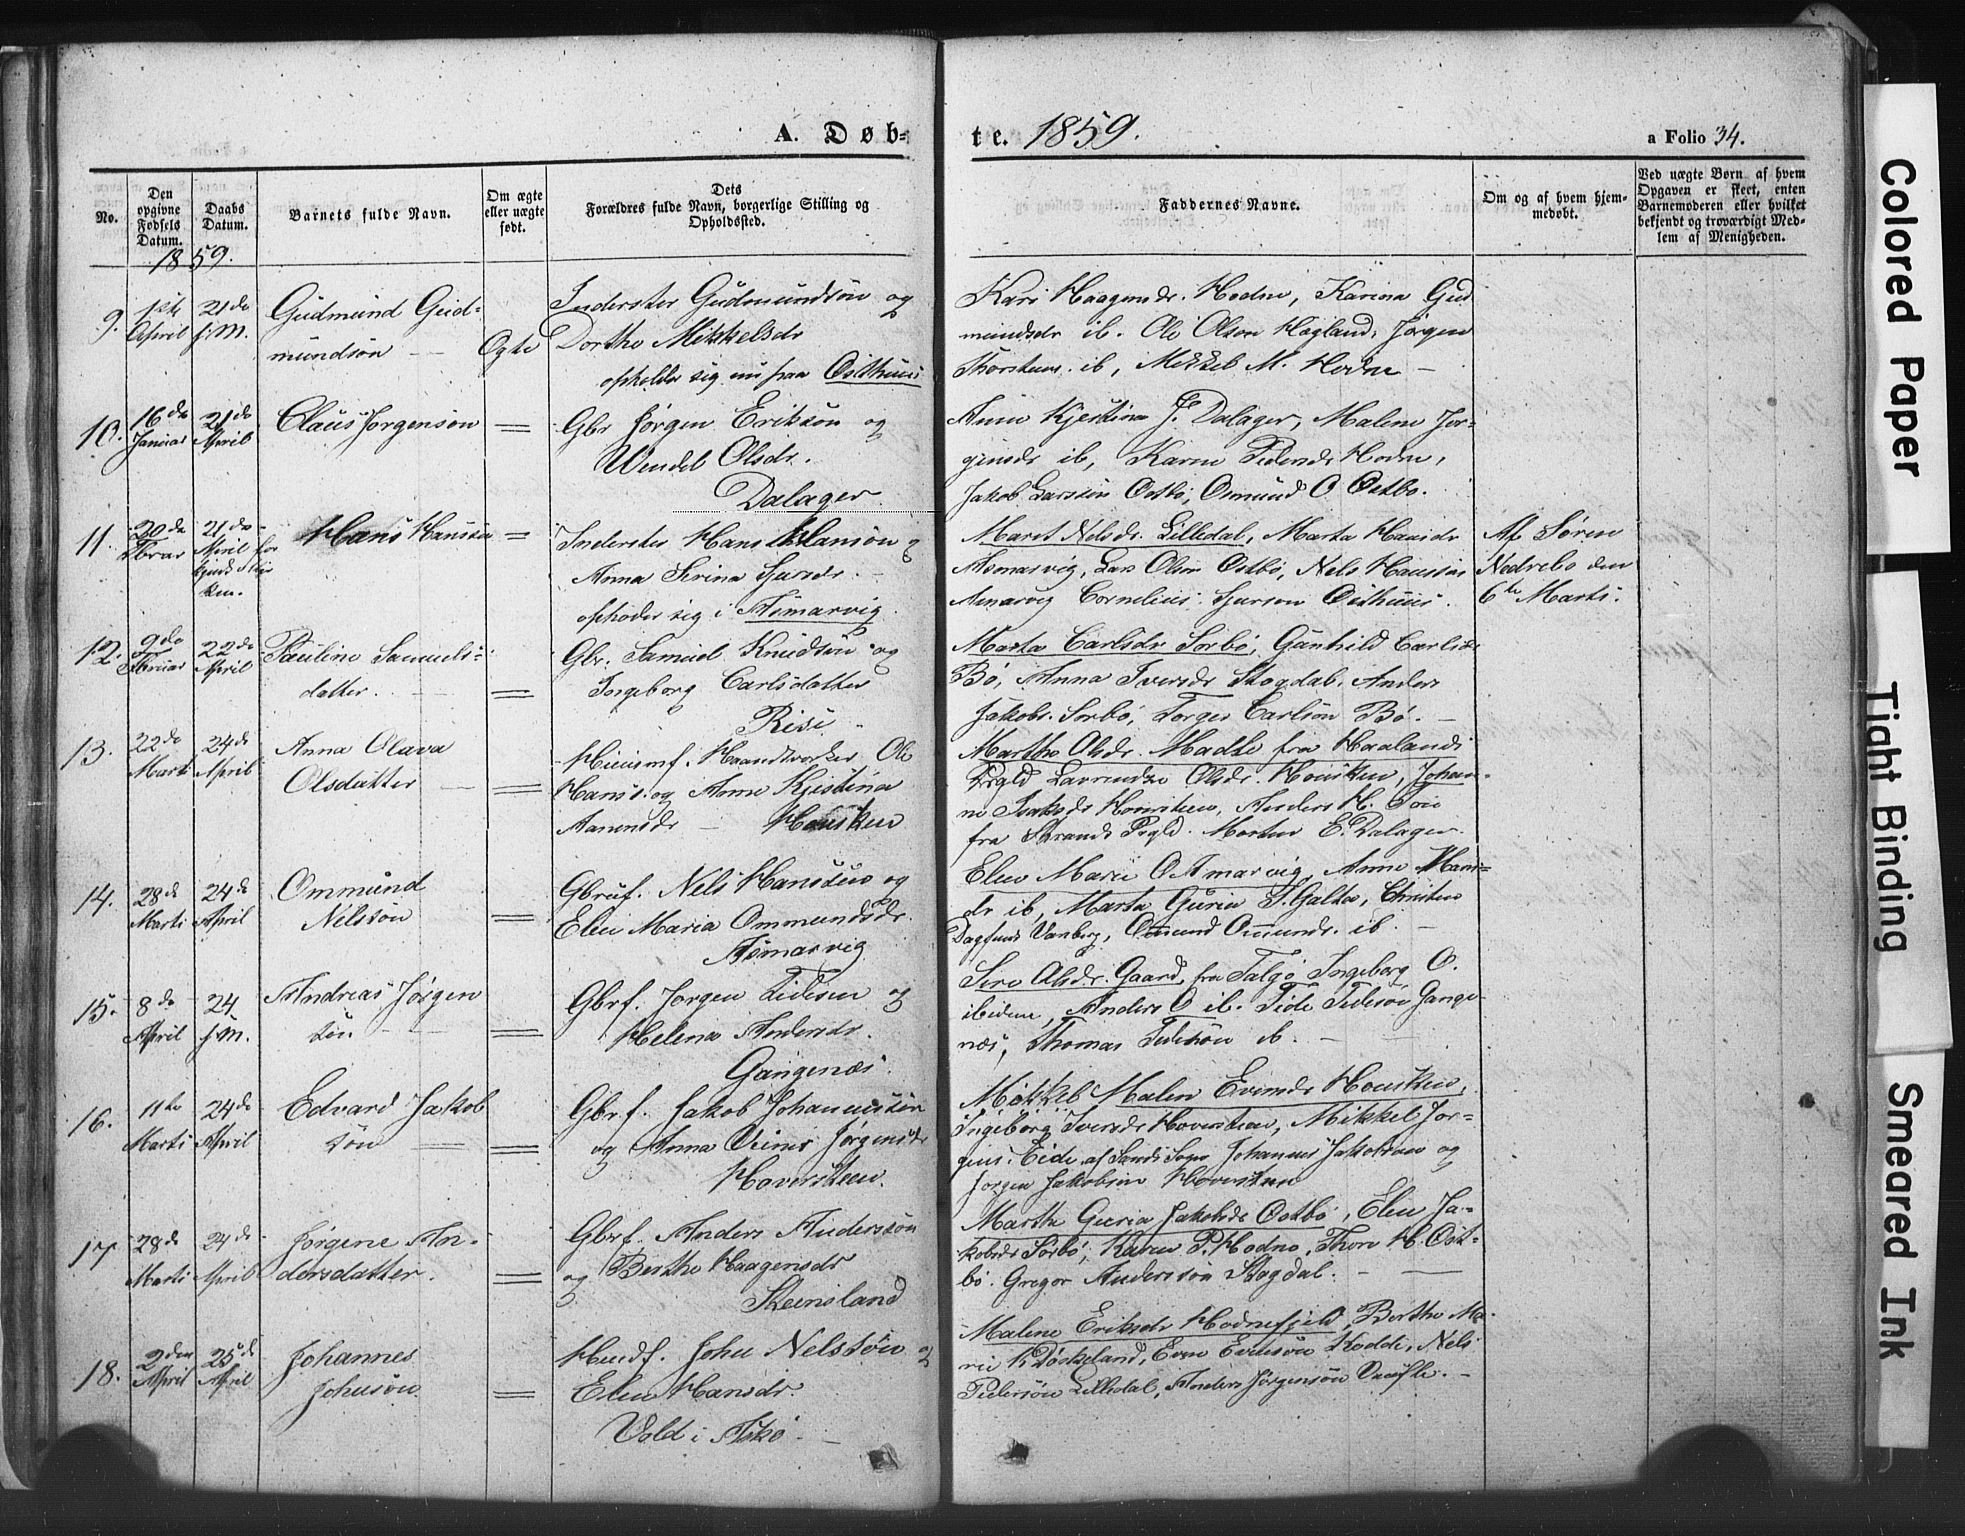 A. Døb-
te. 1859.
a Folio 34.
No.
Den opgivne Fødsels Datum.
Daabs Datum.
Barnets fulde Navn.
Om ægte eller uægte født.
Dets Forældres fulde Navn, borgerlige Stilling og Opholdssted.
Faddernes Navne.
Om og af hvem hjemmedøbt.
Ved uægte Børn af hvem Opgaven er skeet, enten Barnemoderen eller hvilket bekjendt og troværdigt Medlem af Menigheden.
1859.
9. 1ste April 21de f.M.
Gudmund Gud-
mundsøn — Ægte
Inderster Gudmundsøn og
Dorthe Mikkelsdr
opholder sig nu paa Østhuus
Kari Haagensdr. Hodne, Karina Gud
mundsdr ib. Ole Olson Hogland, Jørgen
Thorstens. ib, Mikkel M. Hodne —
10. 16de Januar 21de April
Claus Jørgensøn =
Gbr Jørgen Eriksøn og
Wendel Olsdr.
Dalager
Anne Kjestina J. Dalager, Malene Jør-
gensdr ib, Karen Pedersdr Hodne,
Jakob Larssøn Østbø, Osmund O Østbø.
11. 20de Febrar 21de April
Hans Hanssøn =
Inderster Hans Hansøn og
Anna Serina Sjursdr. —
opholder sig i Asmarvig.
Maret Nelsdr. Lilledal, Marta Hansdr
Asmarvig, Lars Olsen Østbø, Nels Hanssøn
Asmarvig Cornelius Sjurson Østhuus.
Af Søren
Nedrebø den
6te Marts.
12. 9de Februar 22de April
Pauline Samuels-
datter. — =
Gbr. Samuel Knudsøn og
Ingeborg Carlsdatter
Risi
Marta Carlsdr Sørbø, Gunhild Carlsdr
Bø, Anna Iversdr Stogdal, Anders
Jakobs. Sørbø, Torger Carlsøn Bø. —
13. 22de Marti 24de April
Anna Olava
Olsdatter — =
Huusmf. Haandværker Ole
Hans. og Anne Kjestina
Aanensdr — Housken
Marthe Olsdr. Madle fra Haalands
Prgld Lavrendze Olsdr. Housken, Johan-
ne Isaksdr Housken, Anders H. Tou
fra Strands Prgld. Morten E. Dalager.
14. 28de Marti 24de April
Ommund
Nelsøn =
Gbruf. Nels Hanssøn og
Elen Maria Ommundsdr.
Asmarvig
Elen Marie O Asmarvig, Anne Hans-
dr ib, Marta Guria S. Galta, Christen
Dagfinds Vanberg, Omund Omunds. ib. —
15. 8de April 24 f.M.
Andreas Jørgen
søn — =
Gbrf. Jørgen Tidesen og
Helena Andersdr.
Gangenæs.
Siri Olsdr Gaard fra Talgø, Ingeborg O.
ibidem, Anders O ib. Tide Tidesøn Gange-
næs, Thomas Tidesøn ib. —
16. 11te Marti 24de April
Edvard Jakob
søn =
Gbrf. Jakob Johannessøn
og Anna Oline Jørgensdr
Hoversteen.
Mikkel Malen Evensdr Housken,
Ingeborg Iversdr Hoversteen, Mikkel Jør-
gens. Eide af Sands Sogn Johannes Jakobsen og
Jørgen Jakobsen Hoversteen
17 28de Marti 24de April
Jørgene An-
dersdatter. =
Gbrf. Anders Anderssøn
og Berthe Haagensdr
Steinsland
Marthe Guria Jakobsdr Østbø, Elen Ja-
kobsdr Sørbø, Karen P. Hodne, Thore H. Øst-
bø. Gregor Anderssøn Stogdal. —
18. 2den April 25de April
Johannes
Johnsøn =
Huusf. John Nelssøn og
Elen Hansdr.
Vold i Askø —
Malene Eriksdr Hodnefjeld, Berthe Ma-
rie K. Døskeland, Even Evensøn Hodde, Nels
Pedersøn Lilledal, Anders Jørgensøn —
Colored Paper
Tight Binding
Smeared Ink